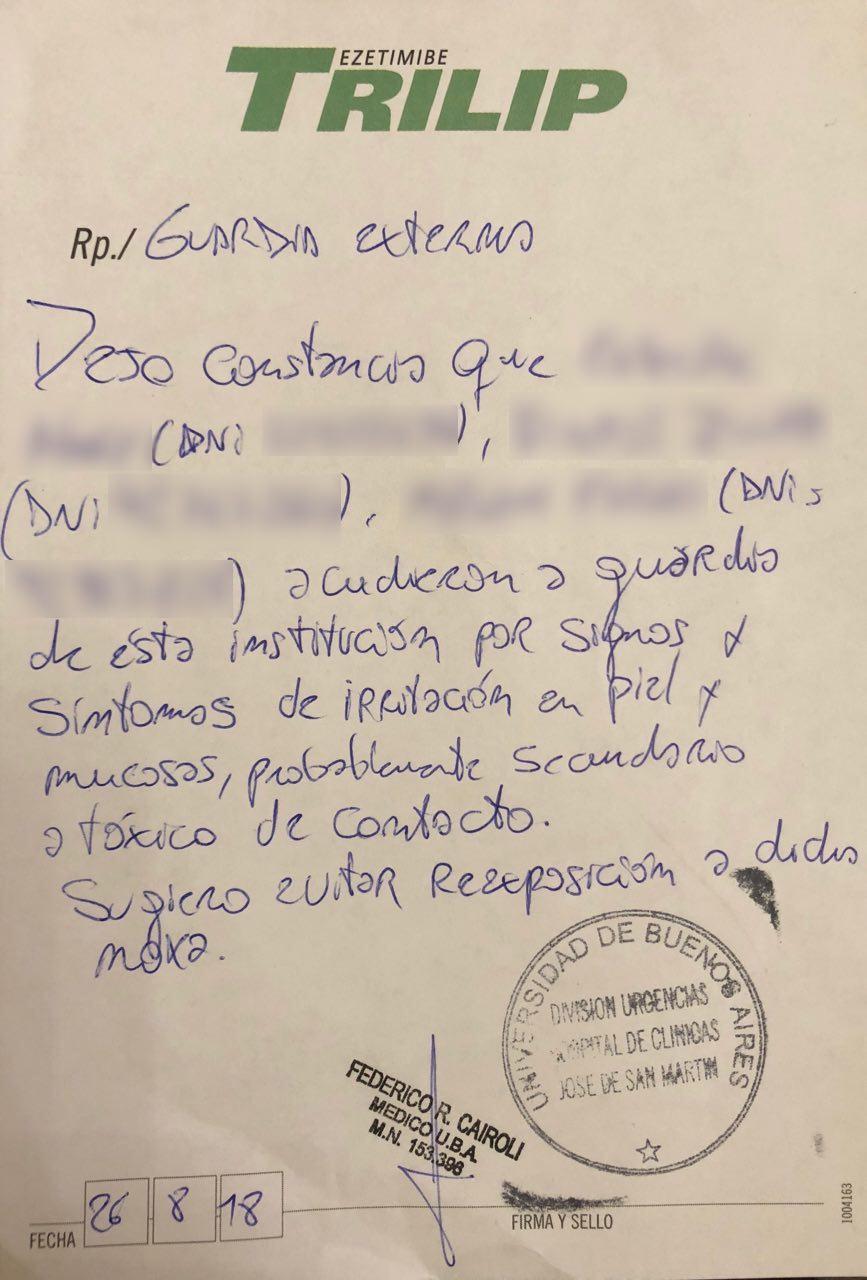 EZETIMIBE
TRILIP
Rp./ GUARDIA externa
Dejo constancia que
(DNI ),
(DNI ), (DNI:
) acudieron a guardia
de ésta institución por signos y
síntomas de irritación en piel y
mucosas, probablemente secundario
a tóxico de contacto.
Sugiero evitar reexposición a dicha
noxa.
UNIVERSIDAD DE BUENOS AIRES
DIVISION URGENCIAS
HOSPITAL DE CLINICAS
JOSE DE SAN MARTIN
FEDERICO R. CAIROLI
MEDICO U.B.A.
M.N. 153.396
FECHA 26 8 18
FIRMA Y SELLO
1004163